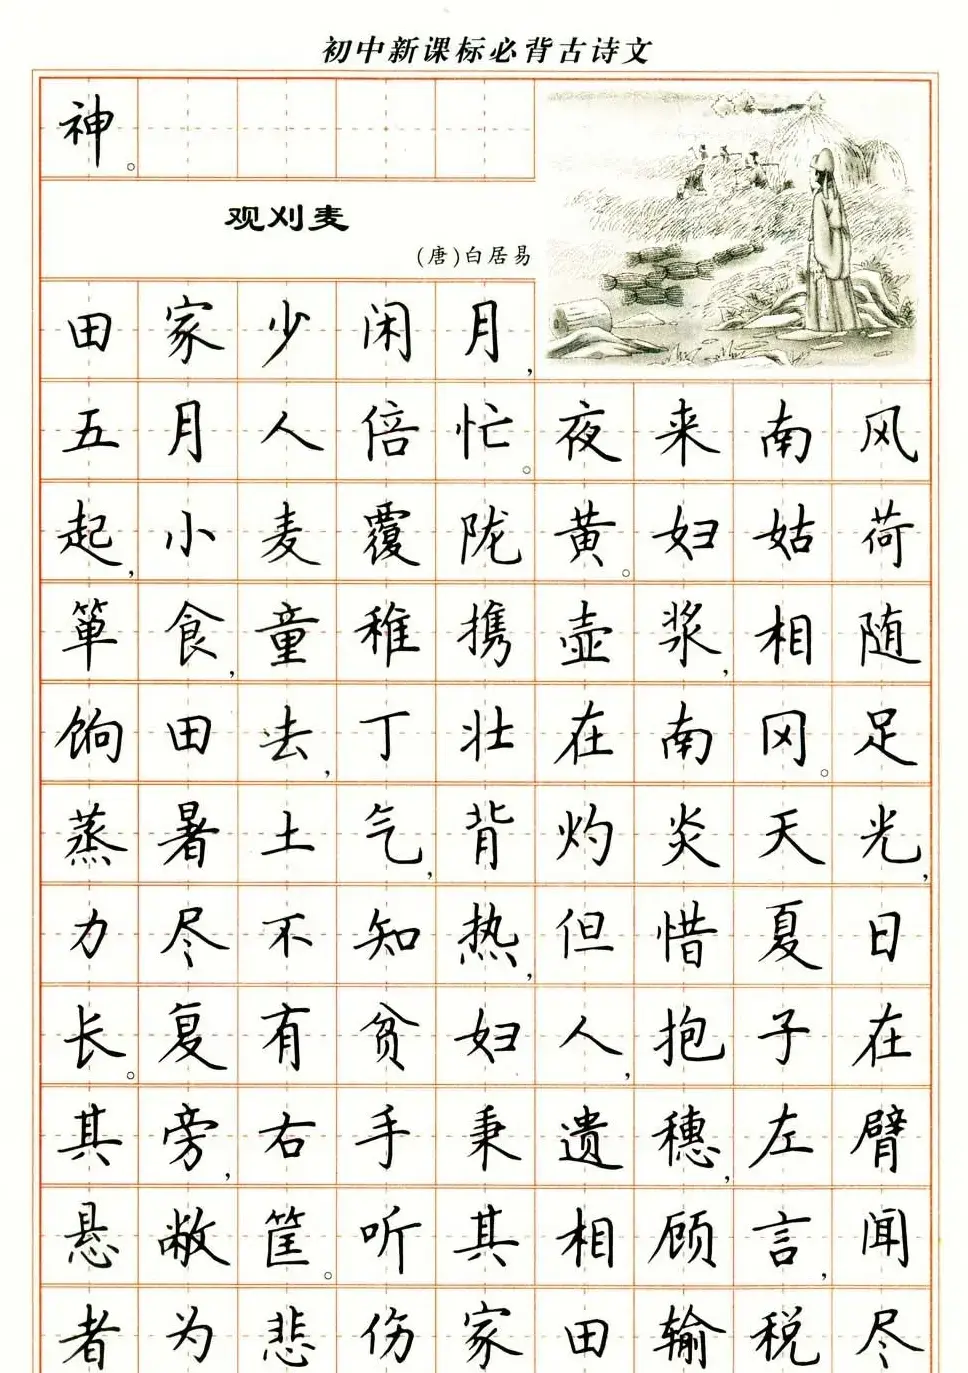 初中新课标必背古诗文
神。
观刈麦
(唐)白居易
田家少闲月，
五月人倍忙。夜来南风
起，小麦覆陇黄。妇姑荷
箪食，童稚携壶浆，相随
饷田去，丁壮在南冈。足
蒸暑土气，背灼炎天光，
力尽不知热，但惜夏日
长。复有贫妇人，抱子在
其旁，右手秉遗穗，左臂
悬敝筐。听其相顾言，闻
者为悲伤家田输税尽